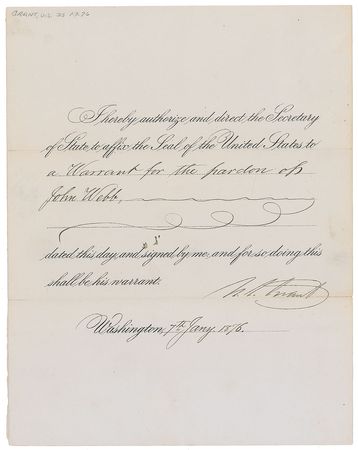 GRANT, U.S.
I hereby authorize and direct the Secretary
of State to affix the Seal of the United States to
a Warrant for the pardon of
John Webb,
dated this day, and signed by me, and for so doing this
shall be his warrant.
U.S. Grant
Washington, 7th Jany. 1876.